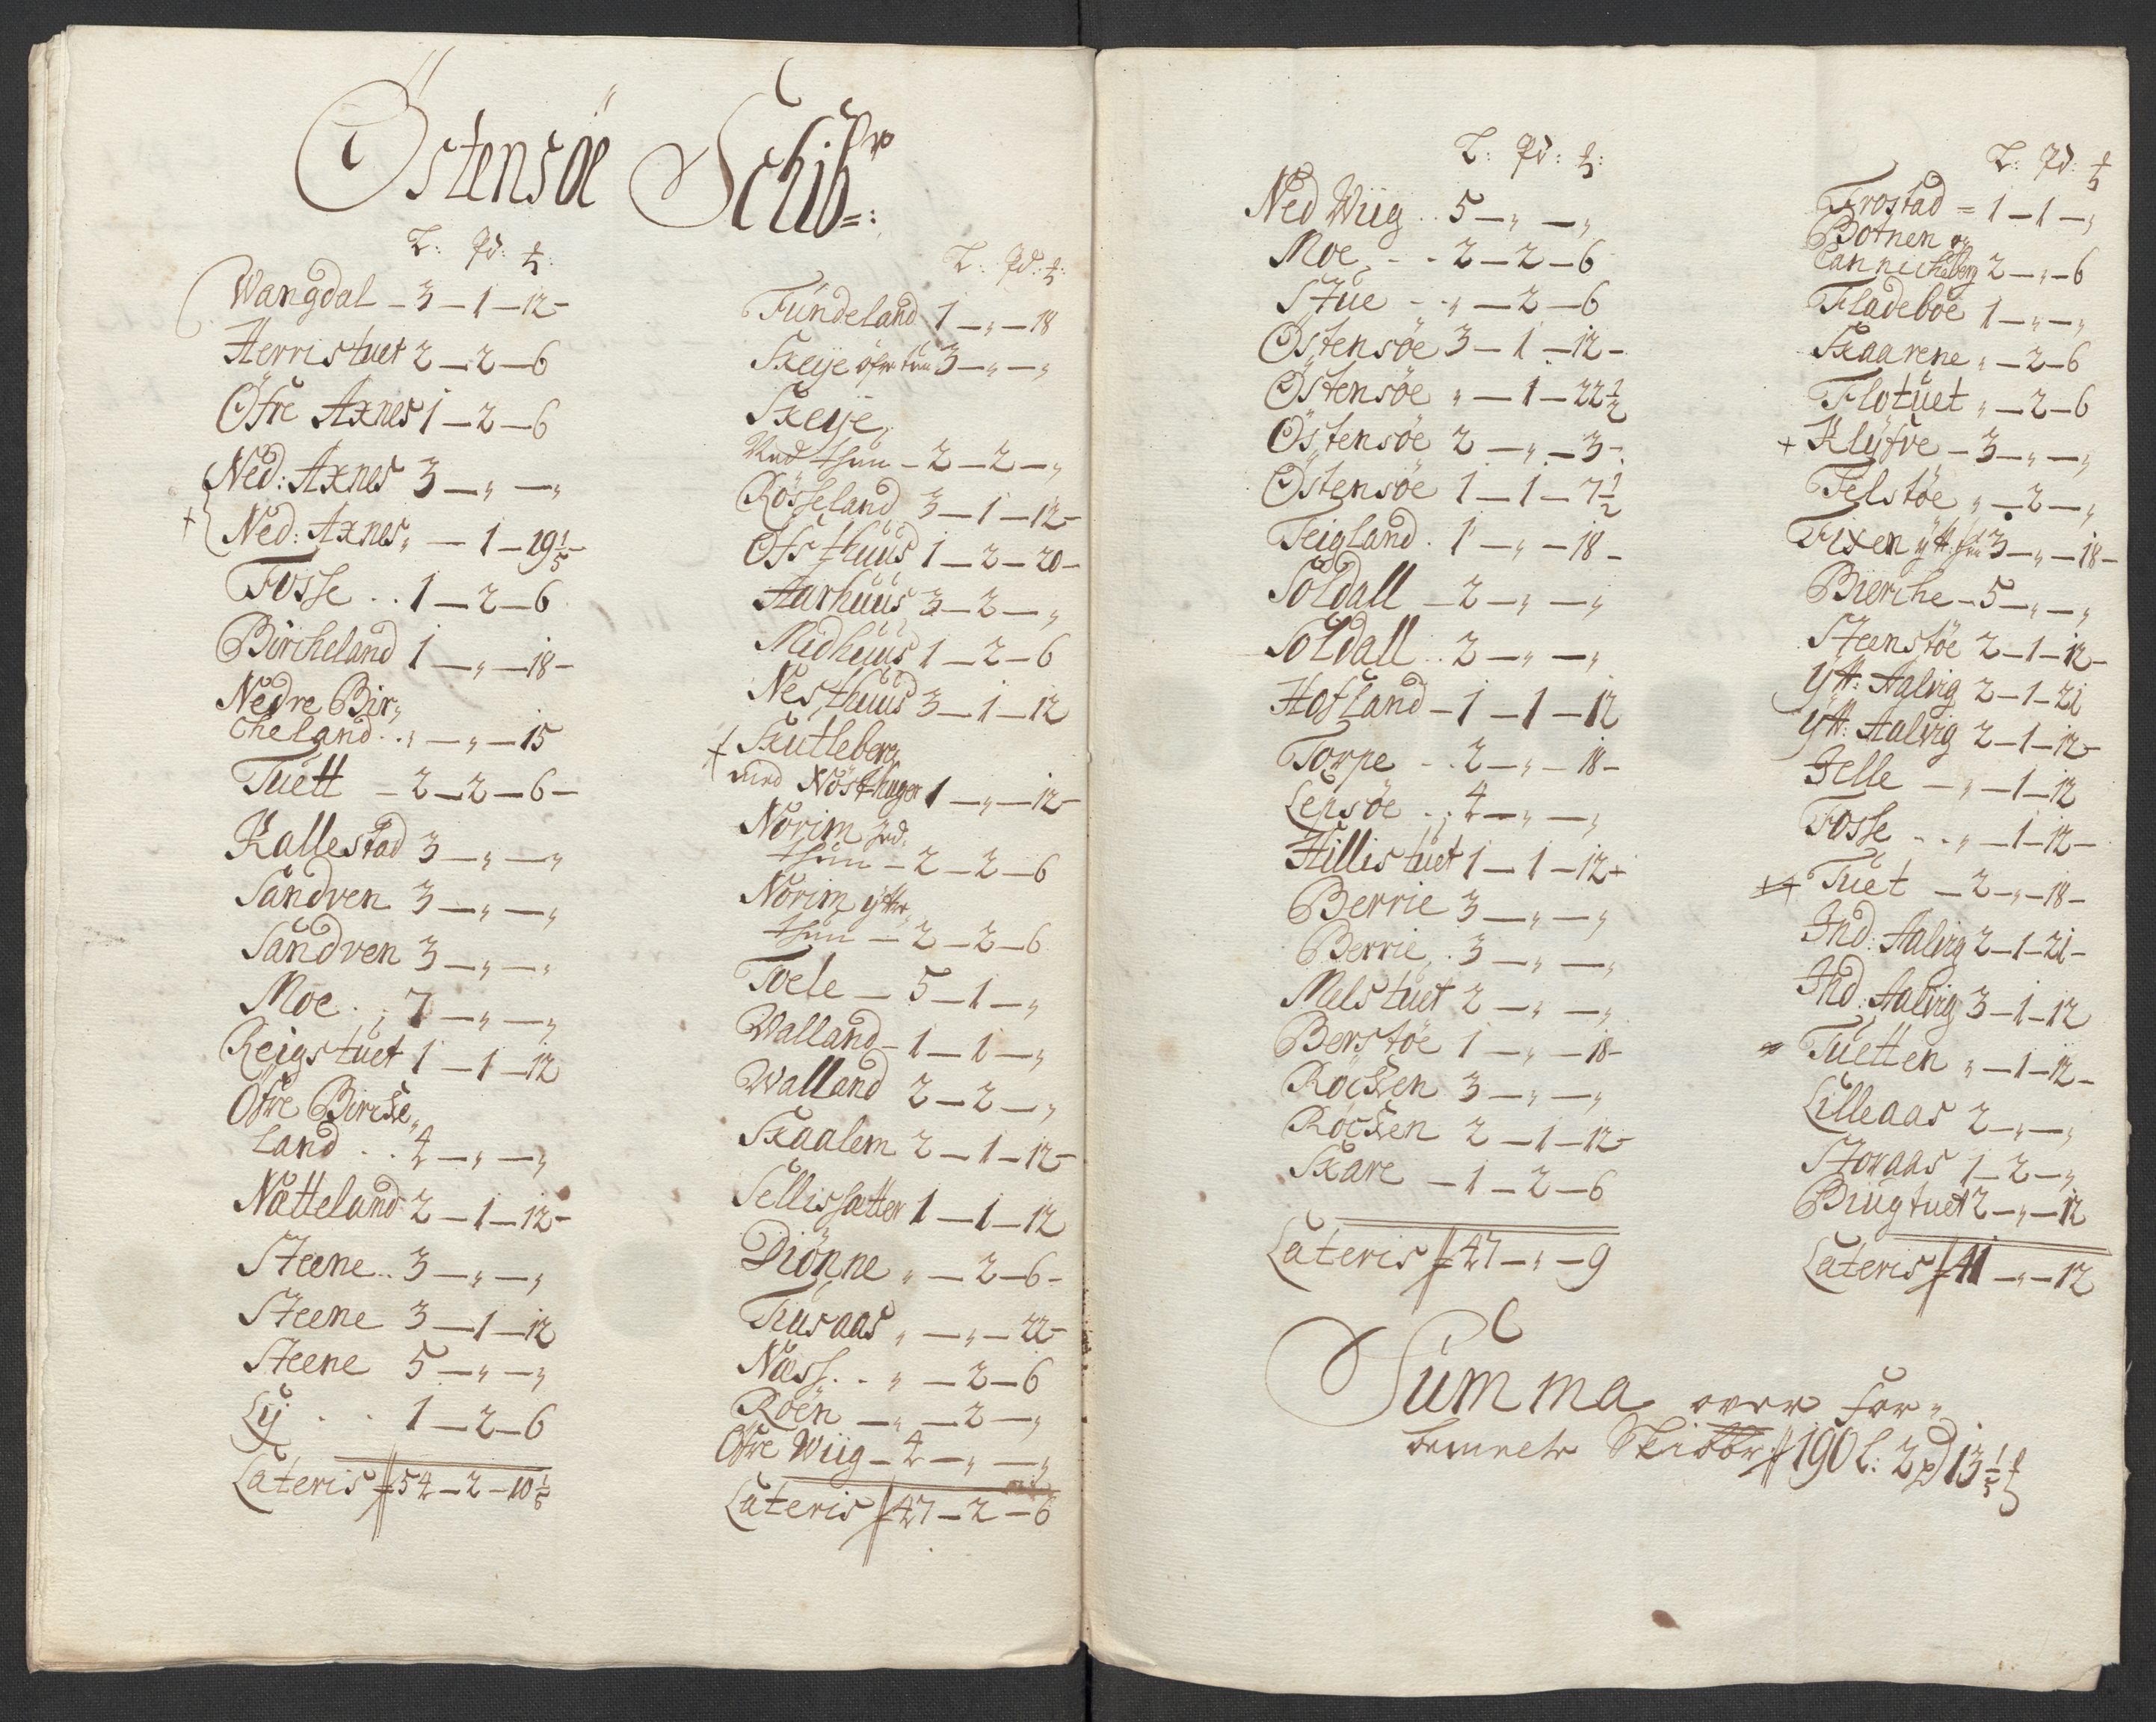 Östensöe Schibr:
L: Pd: ℔:
Wangdal – 3 – 1 – 12 –
Herristuet 2 – 2 – 6
Öfre Axnes 1 – 2 – 6
Ned: Axnes 3 – „ – „
+ Ned: Axnes „ – 1 – 19 1/5 –
Fosse .. 1 – 2 – 6
Bircheland 1 – „ – 18 –
Nedre Bir„
cheland .. „ – „ – 15
Tuett – 2 – 2 – 6 –
Kallestad 3 – „ – „
Sandven 3 – „ – „
Sandven 3 – „ – „
Moe .. 7 – „ – „
Reigstuet 1 – 1 – 12
Öfre Bircke„
Land .. 4 – „ – „
Nætteland 2 – 1 – 12 –
Steene .. 3 – „ – „
Steene 3 – 1 – 12
Steene 5 – „ – „
Lÿ . . 1 – 2 – 6
Lateris 54 – 2 – 10 1/5
L: Pd: ℔:
Fundeland 1 – „ – 18
Skeije öfre tun 3 – „ – „
Skeije,
Ned thun – 2 – 2 – „
Rösseland 3 – 1 – 12 –
Ofsthuus 1 – 2 – 20 –
Aarhuus 3 – 2 – „
Midhuus 1 – 2 – 6
Nesthuus 3 – 1 – 12
+ Skutleberg
med Nösthager 1 – „ – 12 –
Norim Ind.
thun – 2 – 2 – 6
Norim ÿttre„
thun – 2 – 2 – 6
Toele – 5 – 1 – „
Walland – 1 – 1 – „
Walland 2 – 2 – „
Skaalem 2 – 1 – 12 –
Sellissætter 1 – 1 – 12
Diönne „ – 2 – 6 –
Tiusaas „ – „ – 22 –
Næss .. „ – 2 – 6
Röen – „ – 2 – „
Öfre Wiig – 4 – „ – „
Lateris 47 – 2 – 6
L: Pd: ℔:
Ned Wiig .. 5 – „ – „
Moe . - . 2 – 2 – 6
Stue - . „ – 2 – 6
Östensöe 3 – 1 – 12 –
Östensöe „ – 1 – 22 1/2
Östensöe 2 – „ – 3 –
Östensöe 1 – 1 – 7 1/2
Teigland . 1 – „ – 18 –
Soldall – 2 – „ – „
Soldall .. 2 – „ – „
Hofland – 1 – 1 – 12
Torpe - . 2 – „ – 18 –
Lepsöe .. 4 – „ – „
Hillistuet 1 – 1 – 12 +
Berrie 3 – „ – „
Berrie . 3 – „ – „
Melstuet 2 – „ – „
Berstöe 1 – „ – 18 –
Röcken 3 – „ – „
Röcken 2 – 1 – 12 –
Skare – 1 – 2 – 6
Lateris 47 – „ – 9
L: Pd: ℔
Frostad = 1 – 1 – „
Botnen og
Cannicheberg 2 – „ – 6
Fladeboe 1 – „ – „
Skaarene „ – 2 – 6
Flotuet „ – 2 – 6
+ Klÿfve – 3 – „ – „
Felstöe „ – 2 – „
Fixen ÿtt: thun 3 – „ – 18 –
Bierche – 5 – „ – „
Steenstöe 2 – 1 – 12 –
Ÿtt: Aalvig 2 – 1 – 21
Ÿtt: Aalvig 2 – 1 – 12 –
Jelle – „ – 1 – 12
Fosse .. „ – 1 – 12 –
++ Tuet – 2 – „ – 18 –
Ind: Aalvig 2 – 1 – 21 –
Ind: Aalvig 3 – 1 – 12
Tuetten „ – 1 – 12 –
Lilleaas 2 – „ – „
Storaas 1 – 2 – „
Biugtuet 2 – „ – 12
Lateris 41 – „ – 12
Summa over for„
bemelte Skibbr: 190 L: 2 pd 13 1/5 ℔